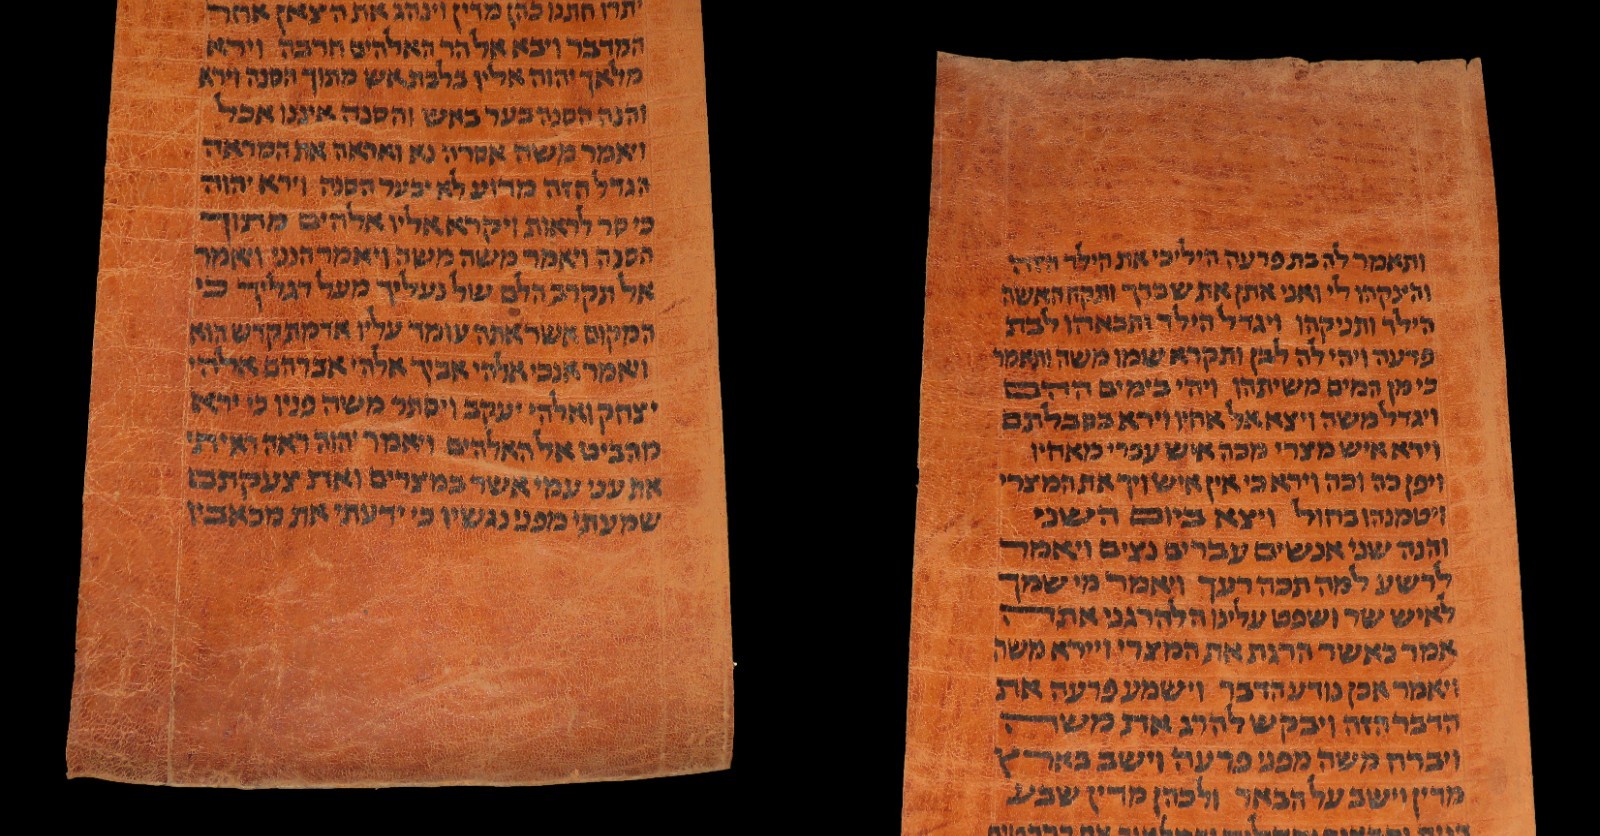 ותאמר לה בת פרעה היליכי את הילד הזה
והינקהו לי ואני אתן את שכרך ותקח האשה
הילד ותניקהו ויגדל הילד ותבאהו לבת
פרעה ויהי לה לבן ותקרא שמו משה ותאמר
כי מן המים משיתהו ויהי בימים ההם
ויגדל משה ויצא אל אחיו וירא בסבלתם
וירא איש מצרי מכה איש עברי מאחיו
ויפן כה וכה וירא כי אין איש ויך את המצרי
ויטמנהו בחול ויצא ביום השני
והנה שני אנשים עברים נצים ויאמר
לרשע למה תכה רעך ויאמר מי שמך
לאיש שר ושפט עלינו הלהרגני אתה
אמר כאשר הרגת את המצרי ויירא משה
ויאמר אכן נודע הדבר וישמע פרעה את
הדבר הזה ויבקש להרג את משה
ויברח משה מפני פרעה וישב בארץ
מדין וישב על הבאר ולכהן מדין שבע
יתרו חתנו כהן מדין וינהג את הצאן אחר
המדבר ויבא אל הר האלהים חרבה וירא
מלאך יהוה אליו בלבת אש מתוך הסנה וירא
והנה הסנה בער באש והסנה איננו אכל
ויאמר משה אסרה נא ואראה את המראה
הגדל הזה מדוע לא יבער הסנה וירא יהוה
כי סר לראות ויקרא אליו אלהים מתוך
הסנה ויאמר משה משה ויאמר הנני ויאמר
אל תקרב הלם של נעליך מעל רגליך כי
המקום אשר אתה עומד עליו אדמת קדש הוא
ויאמר אנכי אלהי אביך אלהי אברהם אלהי
יצחק ואלהי יעקב ויסתר משה פניו כי ירא
מהביט אל האלהים ויאמר יהוה ראה ראיתי
את עני עמי אשר במצרים ואת צעקתם
שמעתי מפני נגשיו כי ידעתי את מכאביו